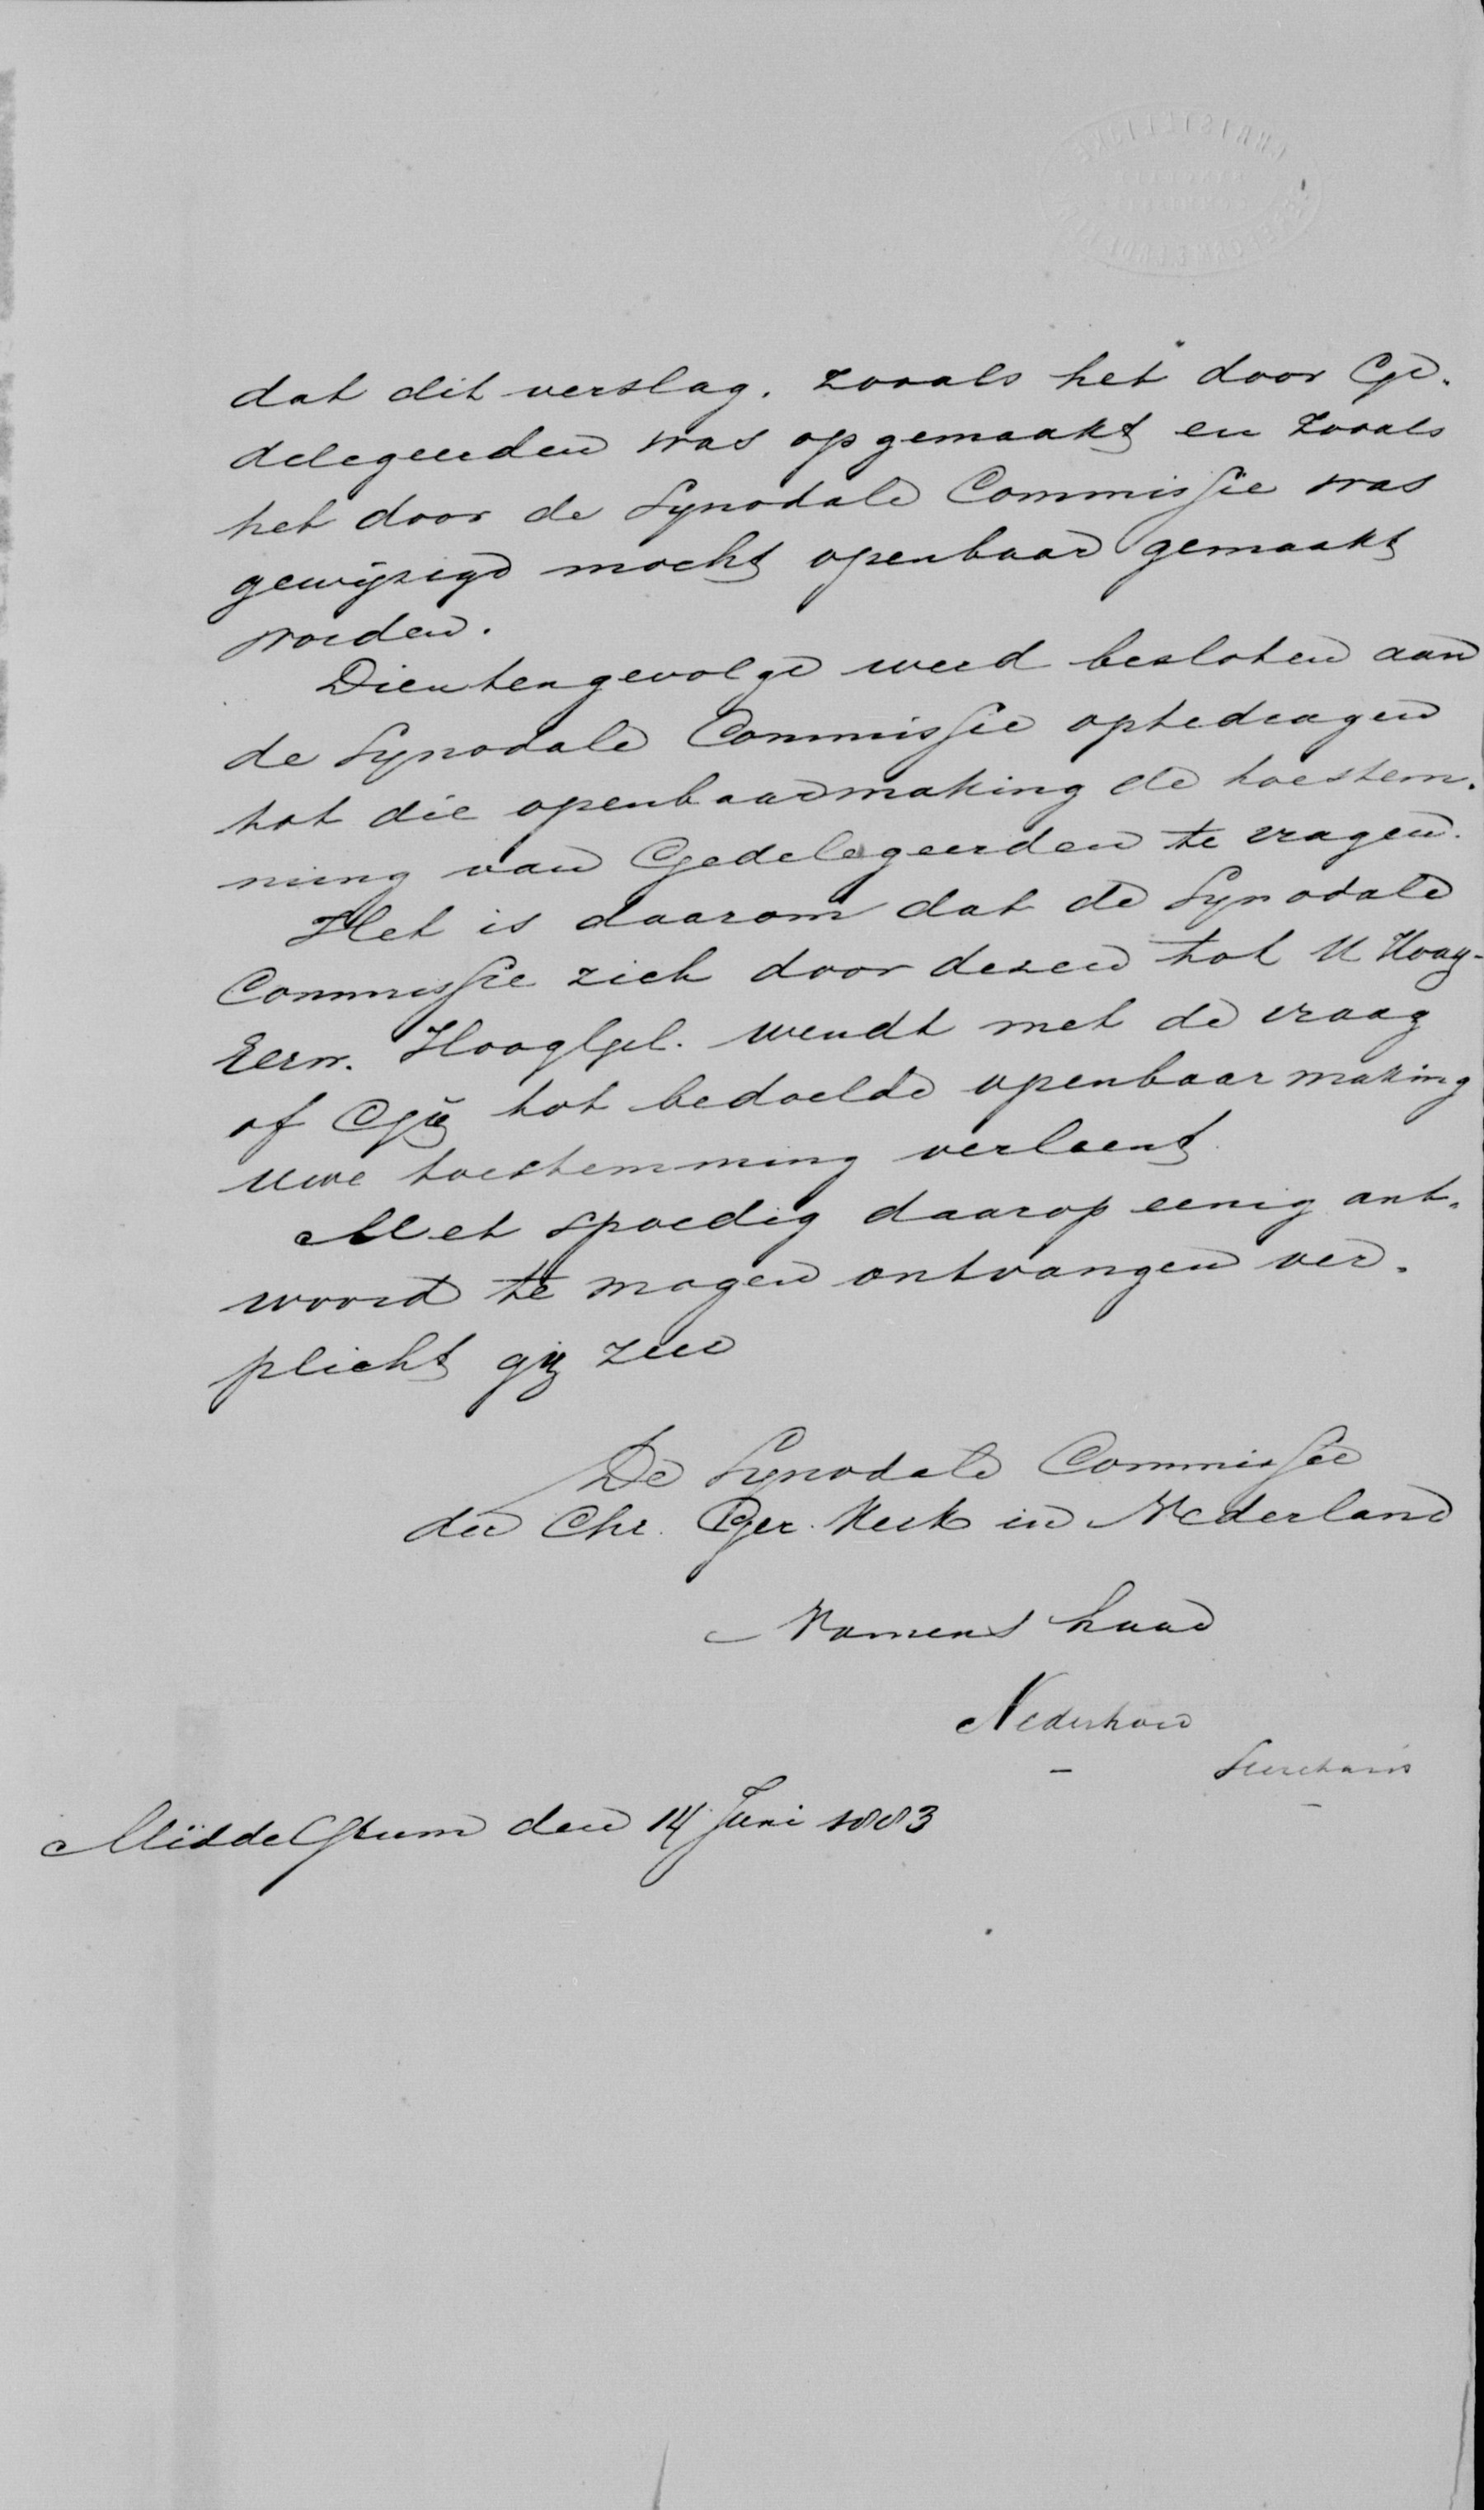 dat dit verslag, zooals het door Ge-
delegeerden was opgemaakt en zooals
het door de Synodale Commissie was
gewijzigd mocht openbaar gemaakt
worden.
Dientengevolge werd besloten aan
de Synodale Commissie optedragen
tot die openbaarmaking de toestem-
ming van Gedelegeerden te vragen.
Het is daarom dat de Synodale
Commissie zich door dezen tot U Hoog-
Eerw. HoogGel. wendt met de vraag
of Gij tot bedoelde openbaarmaking
uwe toestemming verleent.
Met spoedig daarop eenig ant-
woord te mogen ontvangen ver-
plicht gij zeer
De Synodale Commissie
der Chr. Ger. Kerk in Nederland
Namens haar
Secretaris
Middelstum den 14 Juni 1883